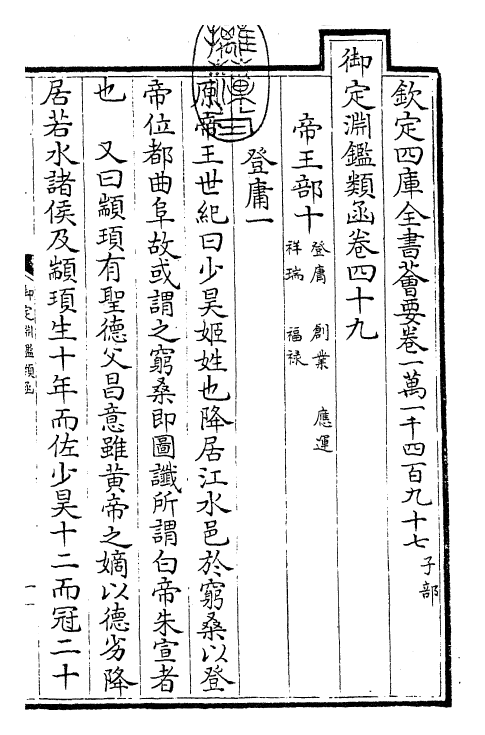 欽定四庫全書薈要卷一萬一千四百九十七 子部
御定淵鑑類函卷四十九
帝王部十 登庸 創業 應運 祥瑞 福祿
登庸一
原帝王世紀曰少昊姬姓也降居江水邑於窮桑以登
帝位都曲阜故或謂之窮桑即圖讖所謂白帝朱宣者
也 又曰顓頊有聖德父昌意雖黃帝之嫡以德劣降
居若水諸侯及顓頊生十年而佐少昊十二而冠二十
御定淵鑑類函
一